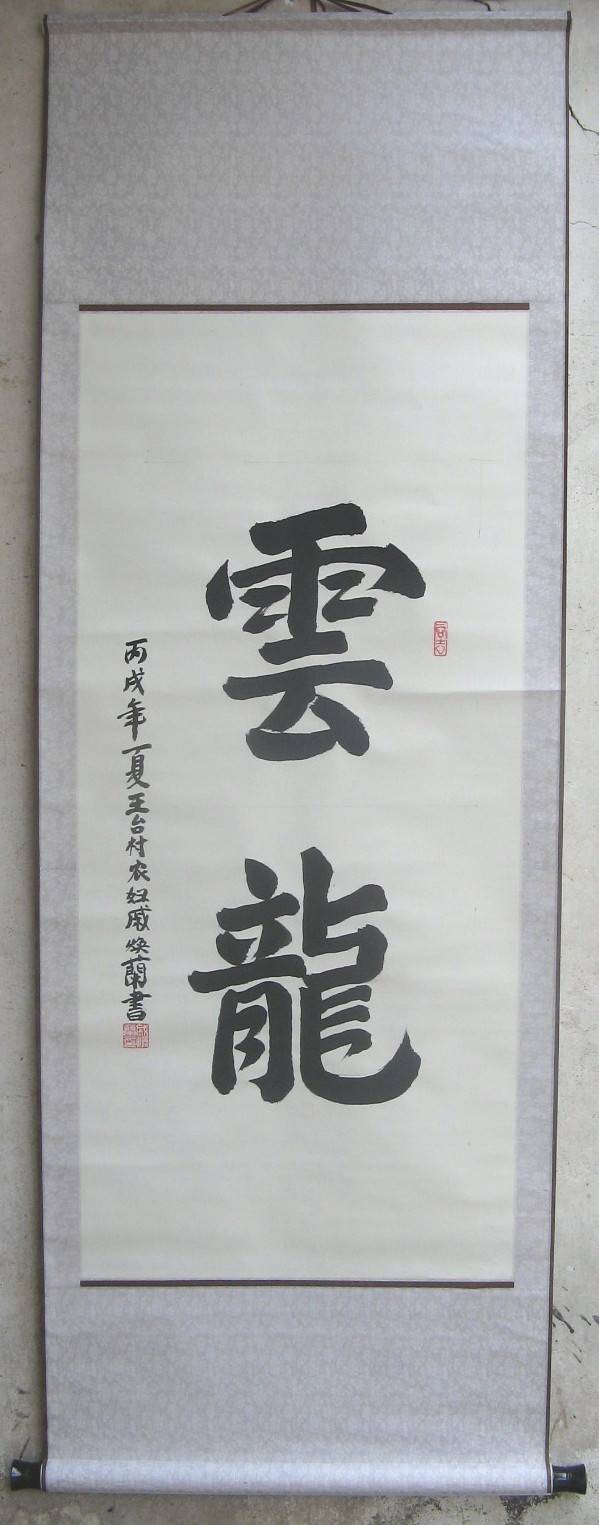 雲龍
丙戌年夏王台村农妇戚焕蘭書